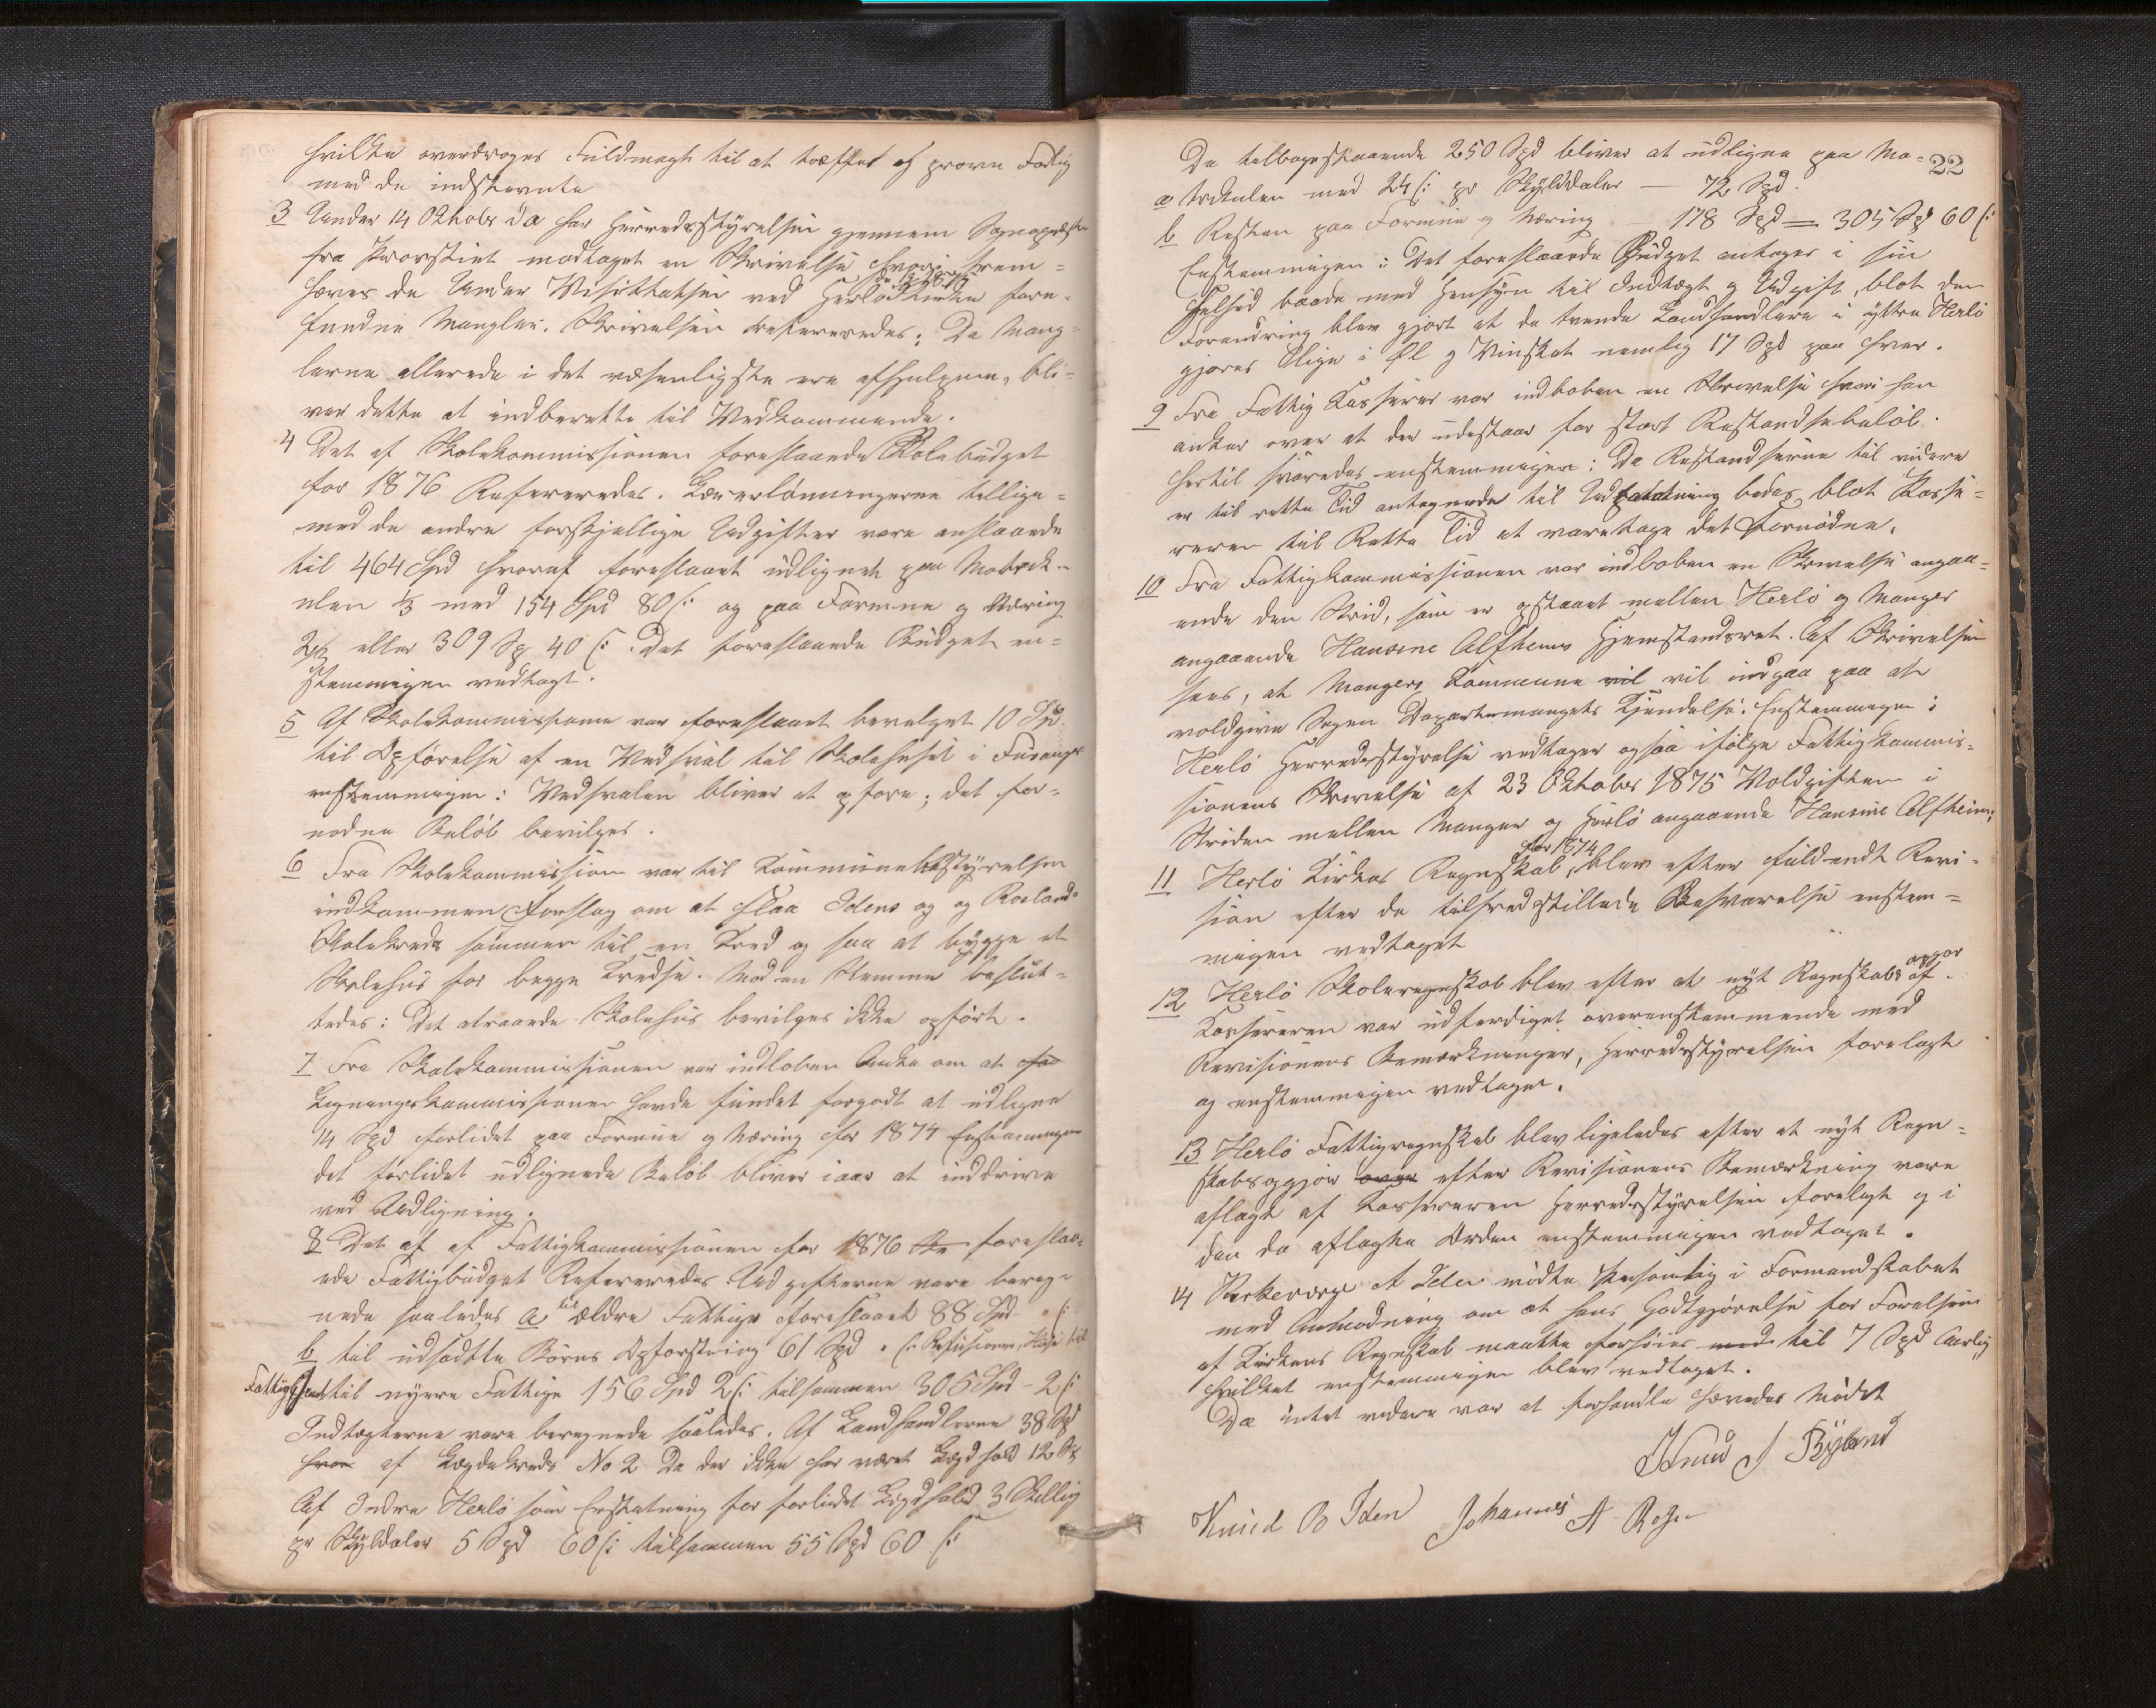 hvilke overdroges Fuldmagt til at træffe og prøve Forlig
med de indstevnte
3 Under 14 Oktober d a har Herredsstyrelsen gjennem Sognepresten
fra Provstiet modtaget en Skrivelse, hvori frem=
hæves de Under Visittatsen ved Herlø Kirke fore=
fundne Mangler. Skrivelsen refereredes: Da Mang=
lerne allerede i det væsenligste ere afhjulpne, bli=
ver dette at indberette til Vedkommende.
4 Det af Skolekommissionen foreslaaede Skolebudget
for 1876 Refereredes. Lærerlønningerne tillige=
med de andre forskjellige Udgifter vare anslaaede
til 464 Spd hvoraf foreslaaet udlignet paa Matrik=
ulen 1/3 med 154 Spd 80 s: og paa Formue og Næring
2/3 eller 309 Sp 40 s: Det foreslaaede Budget en=
stemmigen vedtagt.
5 Af Skolekommissionen var foreslaaet bevalget 10 Spd.
til Opførelse af en Vedsval til Skolehuset i
enstemmigen: Vedsvalen bliver at opføre; det for=
nødne Beløb bevilges.
6 Fra Skolekommission var til Kommunebestyrelsen
indkommen Forslag om at slaa Idens og og Rosland
Skolekreds sammen til en Kred og saa at bygge et
Skolehus for begge Kredse. Mod en Stemme beslut=
tedes: Det attraaede Skolehus bevilges ikke opført.
7 Fra Skolekommissionen var indløben Anke om at
Ligningskommissionen havde fundet forgodt at udligne
14 Spd forlidet paa Formue og Næring for 1874 Enstemmigen
det forlidet udlignede Beløb bliver iaar at inddrive
ved Udligning.
8 Det af af Fattigkommissionen for 1876 foreslaa=
ede Fattigbudget Refereredes. Udgifterne vare bereg=
nede saaledes a til ældre Fattige foreslaaet 88 Spd " s:
b til udsadtte Børns Opfostring 61 Spd " s:
til nyere Fattige 156 Spd 2 s: tilsammen 305 Spd - 2 s:
Indtægterne vare beregnede saaledes. Af Landhandlerne 38 Spd
hvor af Lægdekreds No 2 Da der ikke har været Lægdhold 12 Spd
Af Indre Herlø som Erstatning for forlidet Lægdhold 3 Skilling
pr Skyldaler 5 Spd 60 s: tilsammen 55 Spd 60 s:
22
De tilbagestaaende 250 Spd bliver at udligne paa Ma=
a trikulen med 24 s: pr Skylddaler — 72 Spd.
b Resten paa Formue og Næring — 178 Spd = 305 Spd 60 s:
Enstemmigen: Det foreslaaede Budget antages i sin
Helhed baade med Hensyn til Indtægt og Udgift, blot den
Forandring blev gjort at de tvende Landhandlere i ytre Herlø
gjøres lige i Øl og Vinskat nemlig 17 Spd paa hver.
9 Fra Fattig Kasserer var indløben en Skrivelse hvori han
anker over at der udestaar for stort Restandsebeløb.
hertil svaredes enstemmigen: Da Restandserne til videre
er til rette Tid antegnede til Udpantning bedes blot Kasse=
reren til Rette Tid at varetage det Fornødne.
10 Fra Fattigkommissionen var indløben en Skrivelse angaa=
ende den Strid, som er opstaaet mellem Herlø og Manger
angaaende Hansine Alfheims Hjemstandsret. Af Skrivelsen
sees, at Mangers Kommune vil vil indgaa paa at
voldgive Sagen Departemangets Kjendelse. Enstemmigen:
Herlø Herredsstyrelse vedtager ogsaa ifølge Fattigkommis=
sionens Skrivelse af 23 Oktober 1875 Voldgiften i
Striden mellem Manger og Herlø angaaende Hansine Alfheim;
11 Herlø Kirkes Regnskab, for 1874 blev efter fuldendt Revi=
sion efter de tilfredsstillede Besvarelse enstem=
migen vedtaget
12 Herlø Skoleregnskab blev efter at nyt Regnskabs opgør af
Kassereren var udferdiget overensstemmende med
Revisionens Bemærkninger, Herredsstyrelsen forelagt
og enstemmigen vedtaget.
13 Herlø Fattigregnskab blev ligeledes efter at nyt Regn=
skabsopgjør over efter Revisionens Bemærkning vare
aflagt af Kassereren Herredsstyrelsen forelagt og i
den da aflagte Orden enstemmigen vedtaget.
14 Kirkeverge A Iden mødte Personlig i Formandskabet
med Anmodning om at hans Godtgjørelse for Førelsen
af Kirkens Regnskab maatte forhøies med til 7 Spd Aarlig
hvilket enstemmigen blev vedtaget.
Da intet videre var at forhandle hævedes Mødet
Knud J Byland
Knud O Iden Johannes A